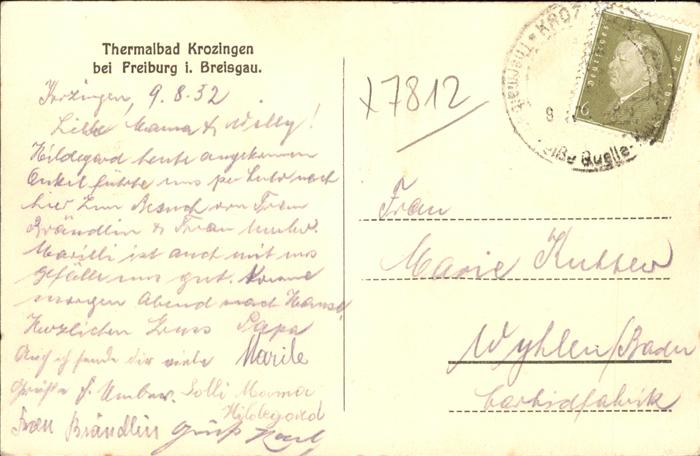 Thermalbad Krozingen
bei Freiburg i. Breisgau.
Krozingen, 9.8.32
Liebe Mama & Willy!
Hildegard heute angekommen
Onkel führte uns per Auto nach
hier zum Besuch von Frau
Brändlin & Frau Umber.
Marili ist auch mit uns
Gefällt uns gut. Komme
morgen Abend nach Hause
Herzlichen Gruss Papa
Auch ich sende dir viele Marile
Grüße F. Umber. Lolli Mama
Hildegard
Frau Brändlin Gruß Karl
x7812
KROZ
Thermalb
Quelle
Deutsches Reich
6
Frau
Marie Kutter
Wyhlen/Baden
Carbidfabrik